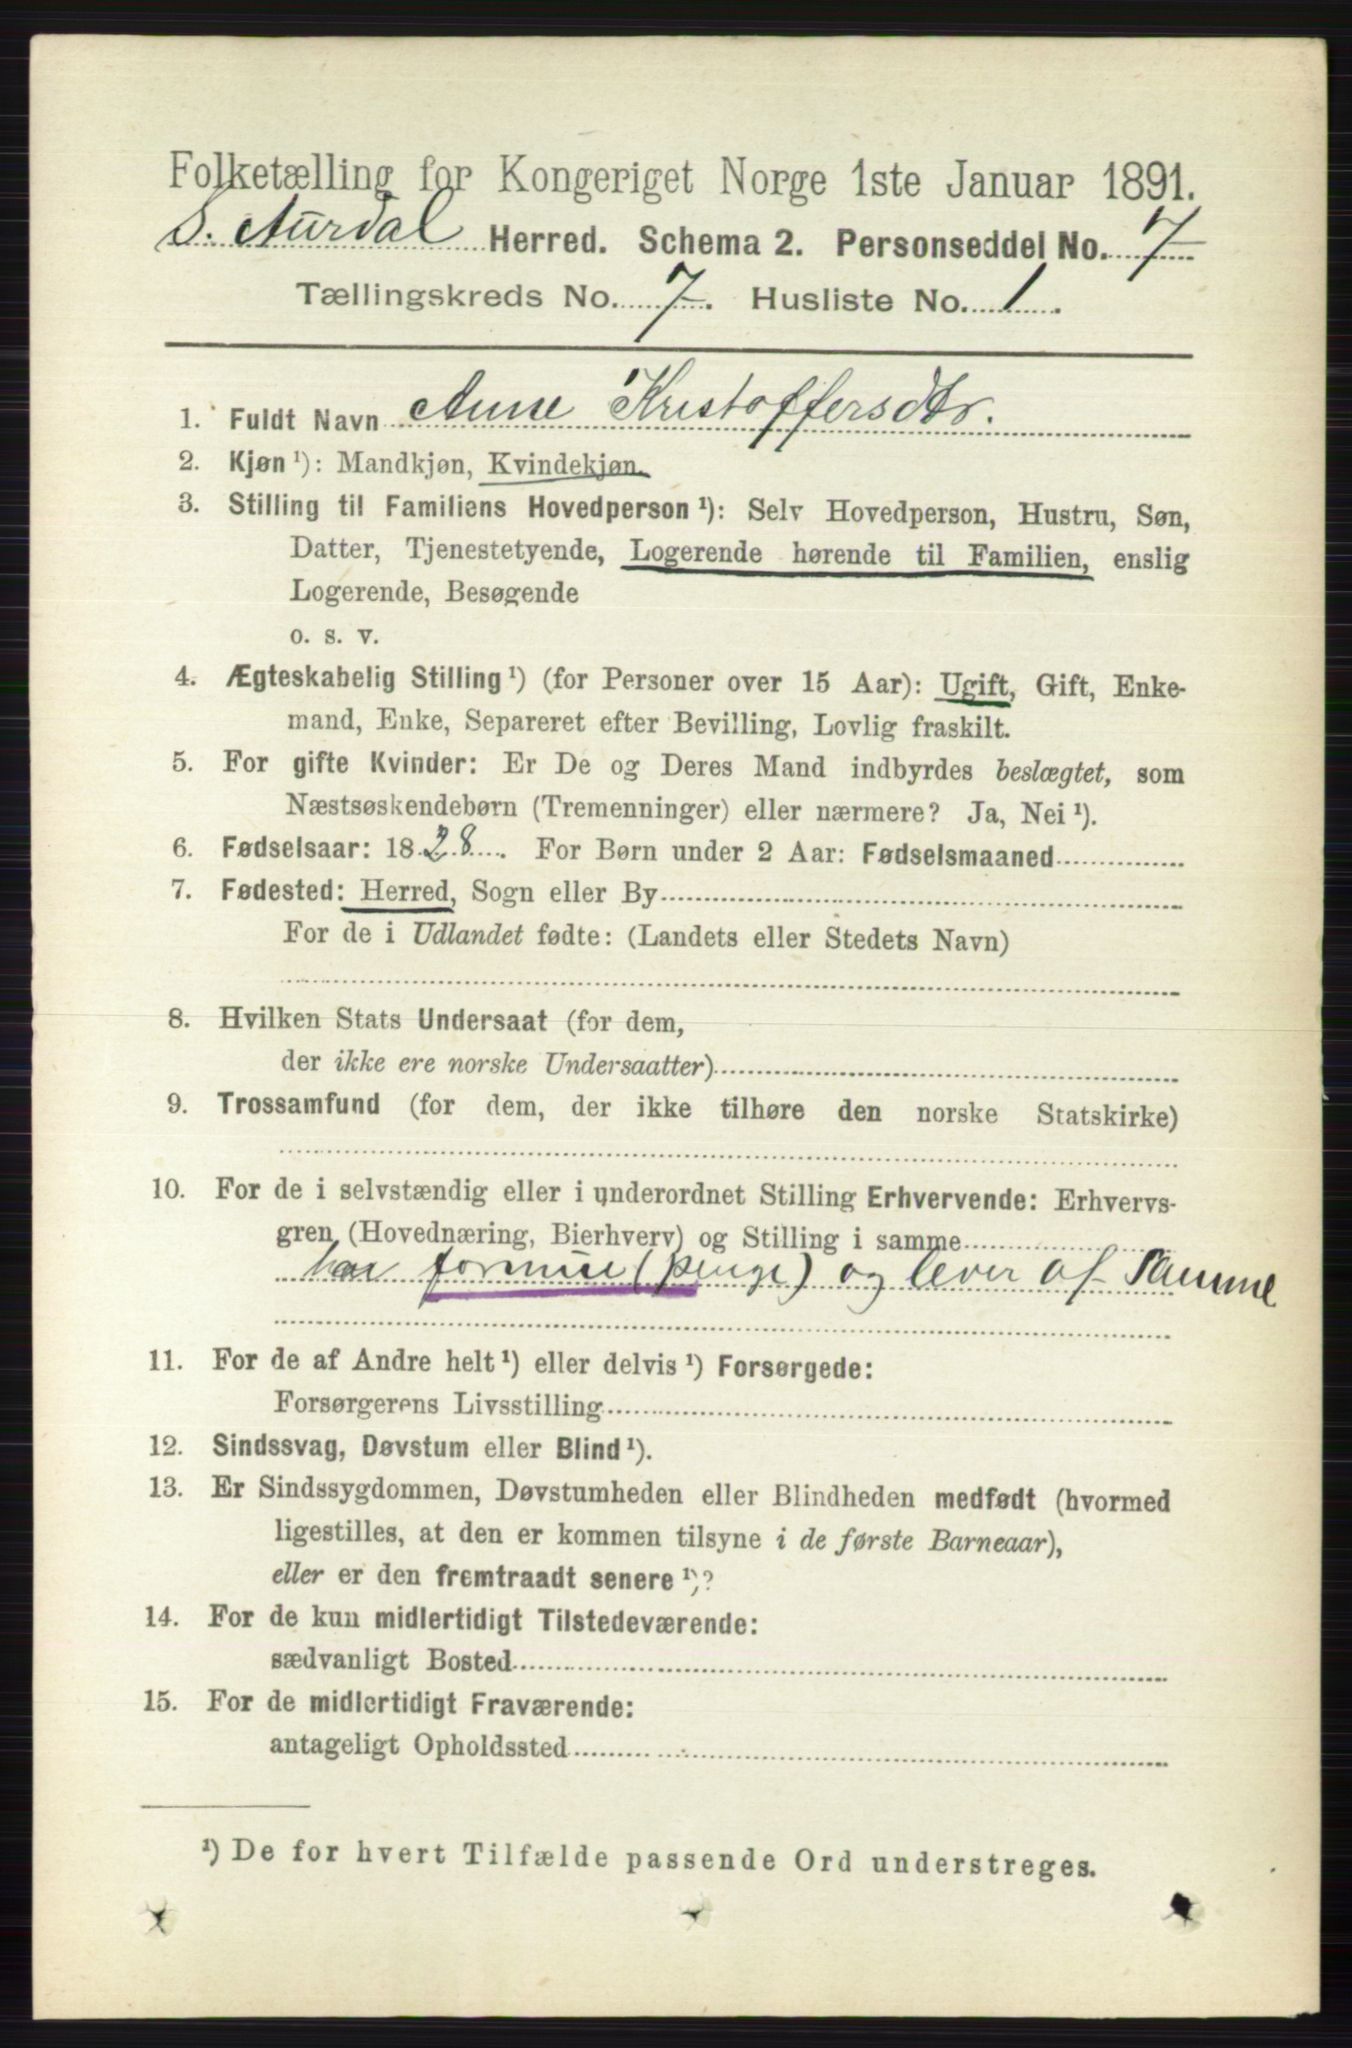 Folketælling for Kongeriget Norge 1ste Januar 1891.
S. Aurdal Herred. Schema 2. Personseddel No. 7
Tællingskreds No. 7. Husliste No. 1.
1. Fuldt Navn Anne Kristoffersdtr.
2. Kjøn ¹): Mandkjøn, Kvindekjøn.
3. Stilling til Familiens Hovedperson ¹): Selv Hovedperson, Hustru, Søn,
Datter, Tjenestetyende, Logerende hørende til Familien, enslig
Logerende, Besøgende
o. s. v.
4. Ægteskabelig Stilling ¹) (for Personer over 15 Aar): Ugift, Gift, Enke-
mand, Enke, Separeret efter Bevilling, Lovlig fraskilt.
5. For gifte Kvinder: Er De og Deres Mand indbyrdes beslægtet, som
Næstsøskendebørn (Tremenninger) eller nærmere? Ja, Nei ¹).
6. Fødselsaar: 1828. For Børn under 2 Aar: Fødselsmaaned
7. Fødested: Herred, Sogn eller By
For de i Udlandet fødte: (Landets eller Stedets Navn)
8. Hvilken Stats Undersaat (for dem,
der ikke ere norske Undersaatter)
9. Trossamfund (for dem, der ikke tilhøre den norske Statskirke)
10. For de i selvstændig eller i underordnet Stilling Erhvervende: Erhvervs-
gren (Hovednæring, Bierhverv) og Stilling i samme
har formue (penge) og lever af Samme
11. For de af Andre helt ¹) eller delvis ¹) Forsørgede:
Forsørgerens Livsstilling
12. Sindssvag, Døvstum eller Blind ¹).
13. Er Sindssygdommen, Døvstumheden eller Blindheden medfødt (hvormed
ligestilles, at den er kommen tilsyne i de første Barneaar),
eller er den fremtraadt senere ¹)?
14. For de kun midlertidigt Tilstedeværende:
sædvanligt Bosted
15. For de midlertidigt Fraværende:
antageligt Opholdssted
¹) De for hvert Tilfælde passende Ord understreges.